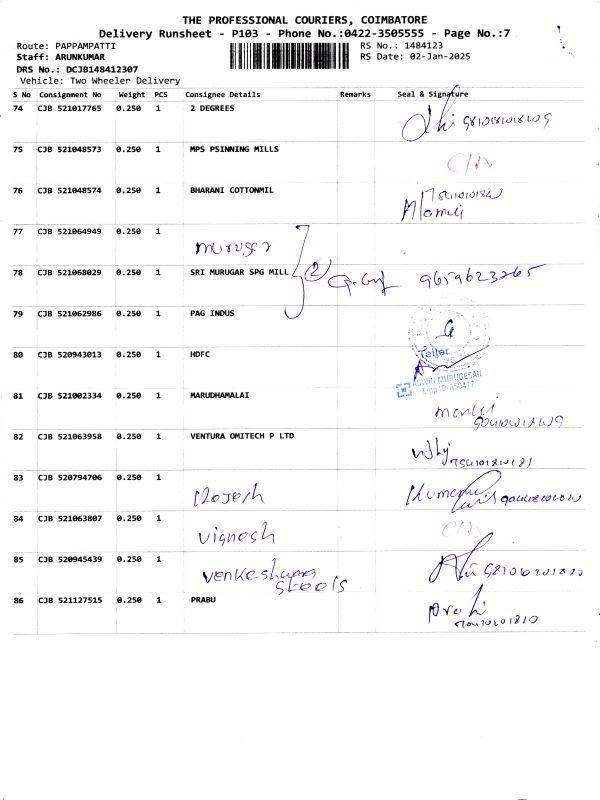 THE PROFESSIONAL COURIERS, COIMBATORE
Delivery Runsheet - P103 - Phone No.:0422-3505555 - Page No.:7
Route: PAPPAMPATTI RS No.: 1484123
Staff: ARUNKUMAR RS Date: 02-Jan-2025
DRS No.: DCJB148412307
Vehicle: Two Wheeler Delivery
S No Consignment No Weight PCS Consignee Details Remarks Seal & Signature
74 CJB 521017765 0.250 1 2 DEGREES
75 CJB 521048573 0.250 1 MPS PSINNING MILLS
76 CJB 521048574 0.250 1 BHARANI COTTONMIL
77 CJB 521064949 0.250 1
murugar
78 CJB 521068029 0.250 1 SRI MURUGAR SPG MILL (2) 9659623265
79 CJB 521062986 0.250 1 PAG INDUS
80 CJB 520943013 0.250 1 HDFC Teller
ASWIN MURUGESAN
Emp ID-A50417
81 CJB 521002334 0.250 1 MARUDHAMALAI
82 CJB 521063958 0.250 1 VENTURA OMITECH P LTD
83 CJB 520794706 0.250 1
Rojesh
84 CJB 521063807 0.250 1
Vignesh
85 CJB 520945439 0.250 1
Venkeshwara
Steels
86 CJB 521127515 0.250 1 PRABU